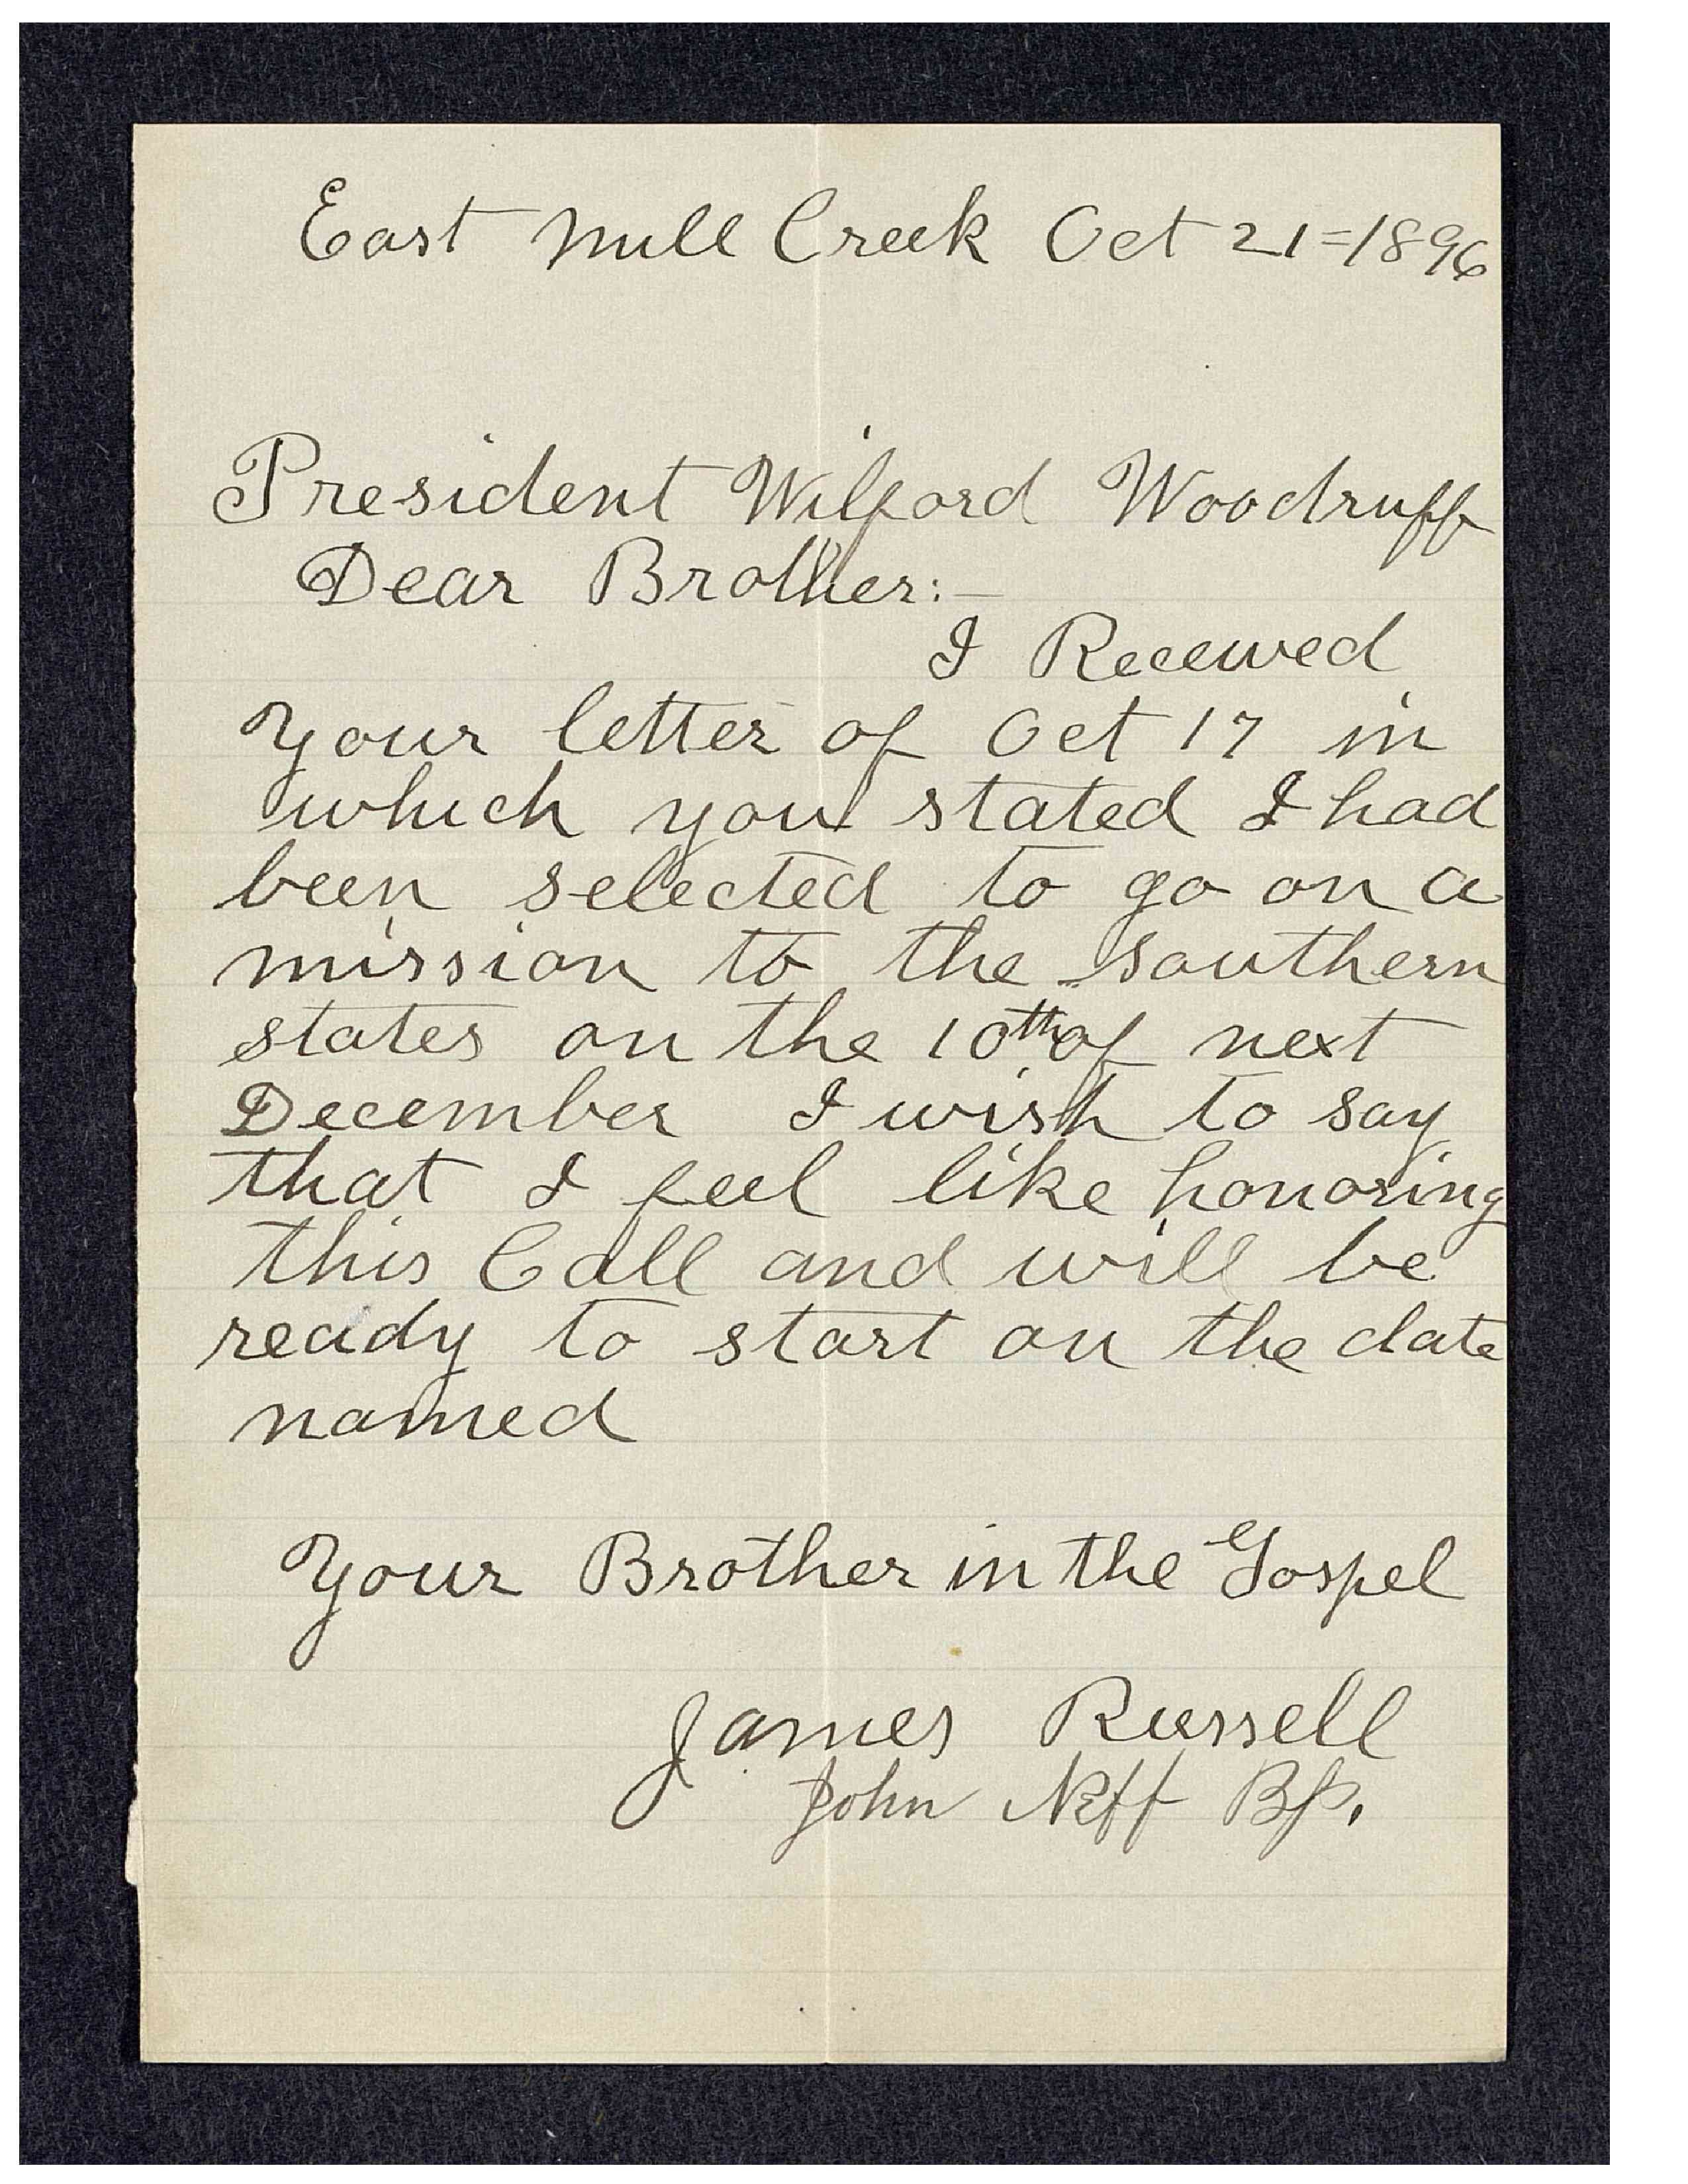 East Mill Creek Oct 21=1896
President Wilford Woodruff
Dear Brother:—
I Received
Your letter of Oct 17 in
which you stated I had
been selected to go on a
mission to the southern
states on the 10th of next
December I wish to say
that I feel like honoring
this Call and will be
ready to start on the date
named
Your Brother in the Gospel
James Russell
John Neff Bp.